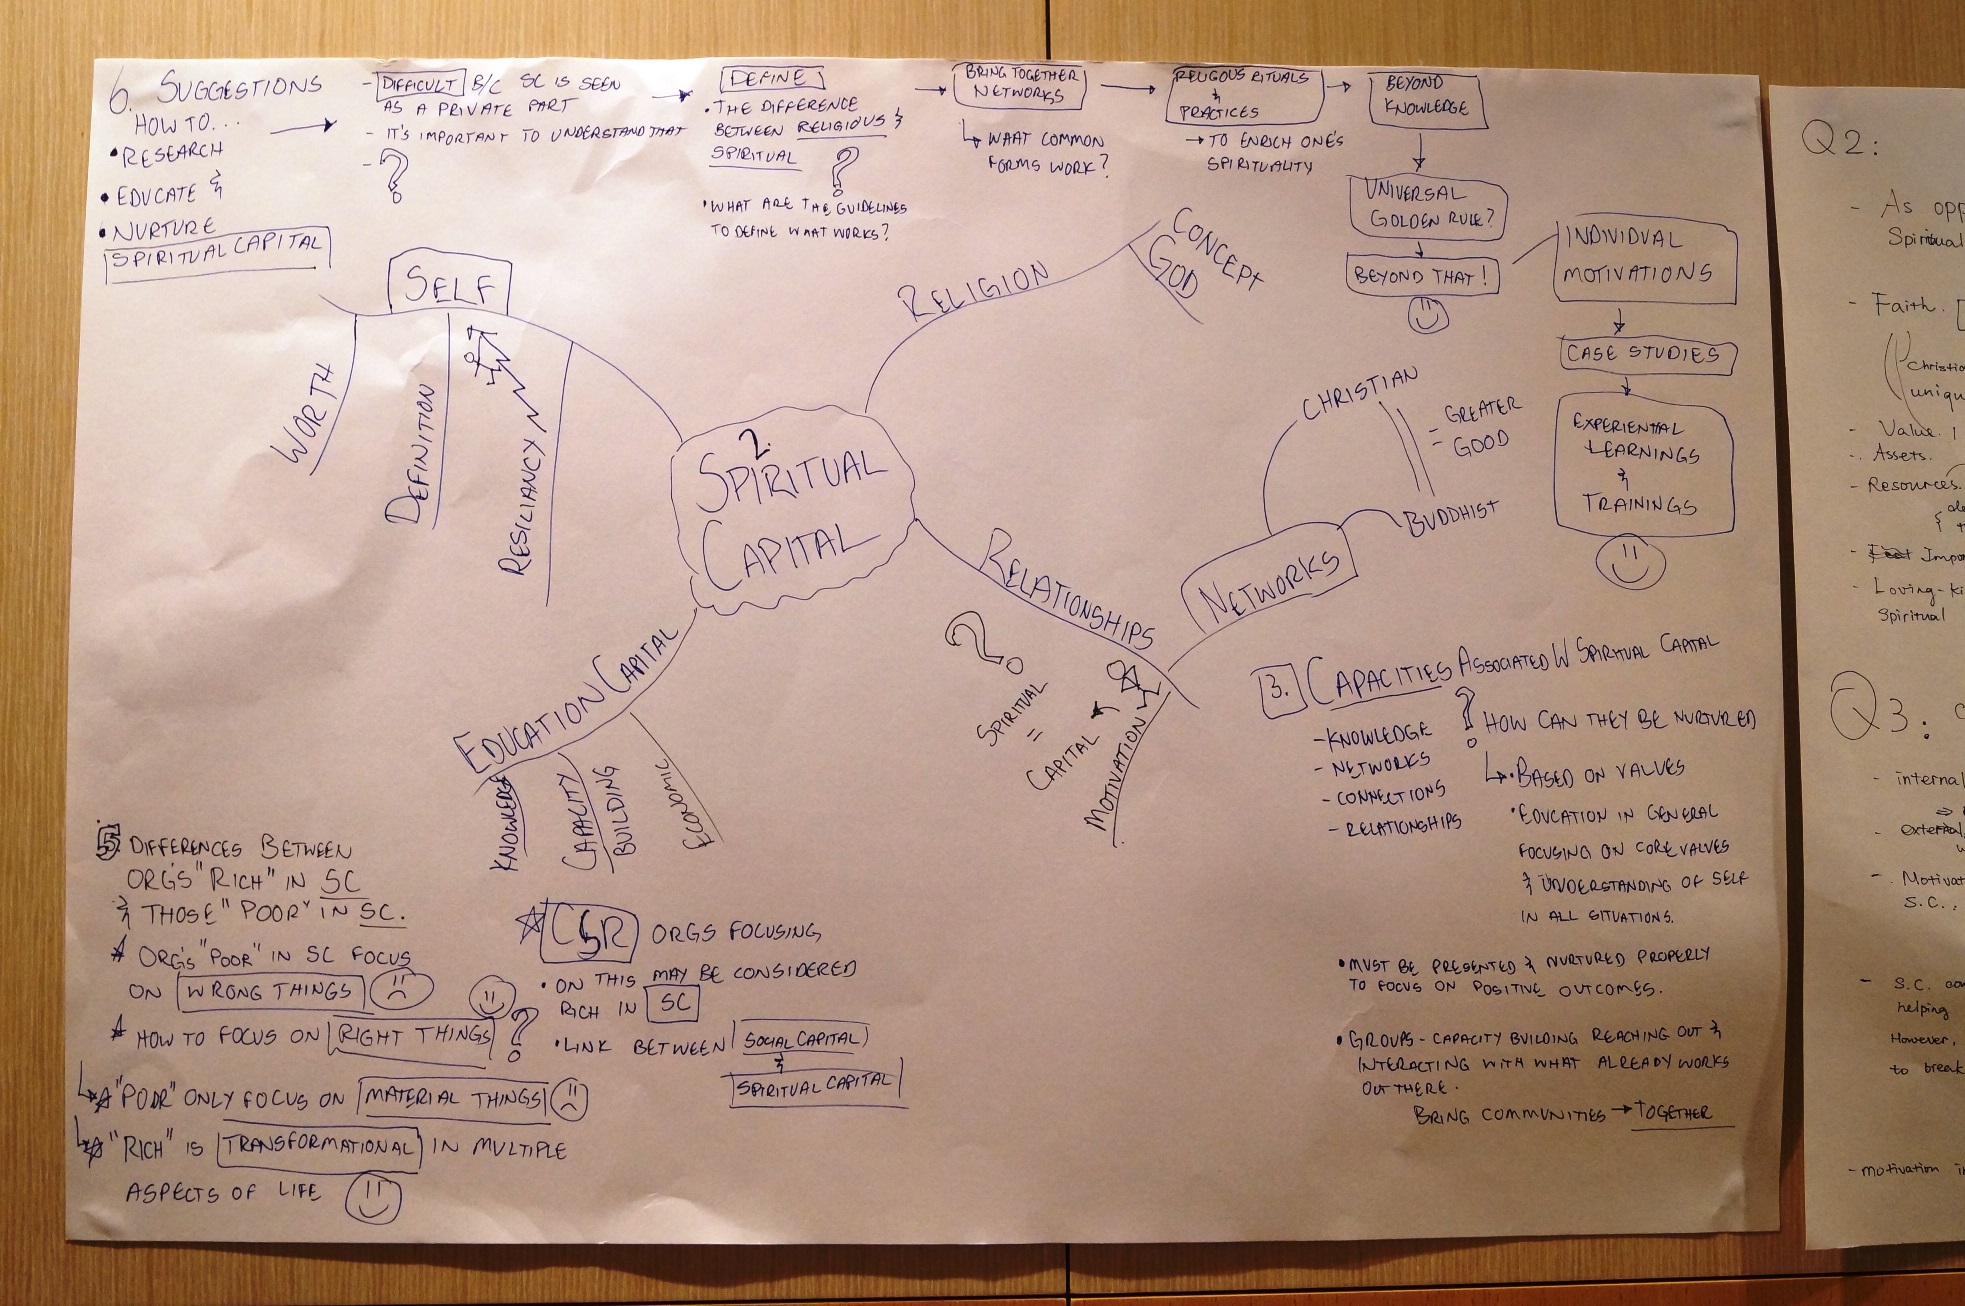 6. SUGGESTIONS
HOW TO...
• RESEARCH
• EDUCATE &
• NURTURE
SPIRITUAL CAPITAL
- DIFFICULT B/C SC IS SEEN
AS A PRIVATE PART
- IT'S IMPORTANT TO UNDERSTAND THAT
- ?
DEFINE
• THE DIFFERENCE
BETWEEN RELIGIOUS &
SPIRITUAL ?
• WHAT ARE THE GUIDELINES
TO DEFINE WHAT WORKS?
BRING TOGETHER
NETWORKS
WHAT COMMON
FORMS WORK?
RELIGOUS RITUALS
&
PRACTICES
→ TO ENRICH ONE'S
SPIRITUALITY
BEYOND
KNOWLEDGE
UNIVERSAL
GOLDEN RULE?
BEYOND THAT!
INDIVIDUAL
MOTIVATIONS
CASE STUDIES
EXPERIENTIAL
LEARNINGS
&
TRAININGS
2.
SPIRITUAL
CAPITAL
SELF
WORTH
DEFINITION
RESILIANCY
RELIGION
CONCEPT
GOD
RELATIONSHIPS
?
SPIRITUAL
=
CAPITAL
MOTIVATION
NETWORKS
CHRISTIAN
BUDDHIST
- GREATER
= GOOD
EDUCATION CAPITAL
KNOWLEDGE
CAPACITY
BUILDING
ECONOMIC
3. CAPACITIES ASSOCIATED W SPIRITUAL CAPITAL
- KNOWLEDGE
- NETWORKS
- CONNECTIONS
- RELATIONSHIPS
? HOW CAN THEY BE NURTURED
• BASED ON VALUES
• EDUCATION IN GENERAL
FOCUSING ON CORE VALUES
& UNDERSTANDING OF SELF
IN ALL SITUATIONS.
• MUST BE PRESENTED & NURTURED PROPERLY
TO FOCUS ON POSITIVE OUTCOMES.
• GROUPS - CAPACITY BUILDING REACHING OUT &
INTERACTING WITH WHAT ALREADY WORKS
OUT THERE.
BRING COMMUNITIES → TOGETHER
5. DIFFERENCES BETWEEN
ORG'S "RICH" IN SC
& THOSE "POOR" IN SC.
ORG'S "POOR" IN SC FOCUS
ON WRONG THINGS
HOW TO FOCUS ON RIGHT THINGS ?
"POOR" ONLY FOCUS ON MATERIAL THINGS
"RICH" IS TRANSFORMATIONAL IN MULTIPLE
ASPECTS OF LIFE
CSR ORGS FOCUSING
• ON THIS MAY BE CONSIDERED
RICH IN SC
• LINK BETWEEN SOCIAL CAPITAL
&
SPIRITUAL CAPITAL
Q2:
- As opp
Spiritual
- Faith.
Christia
uniqu
- Value.
- Assets.
- Resources.
- Impo
- Loving-ki
Spiritual
Q3:
- internal
- external
- Motivat
S.C.
- S.C.
helping
However,
to break
- motivation